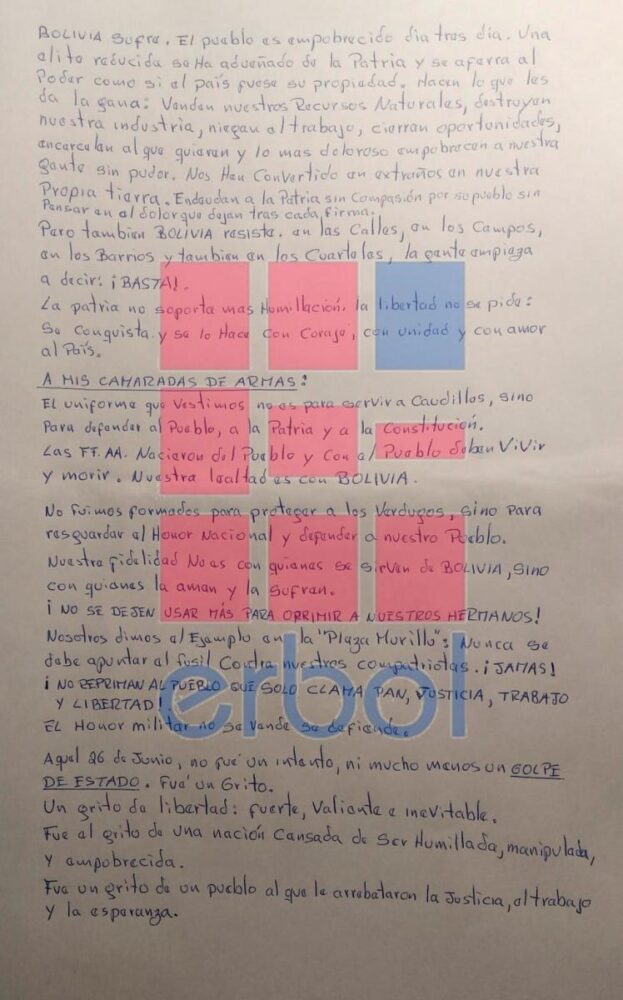 BOLIVIA Sufre. El pueblo es empobrecido dia tras dia. Una
elite reducida se Ha adueñado de la Patria y se aferra al
Poder como si el país fuese su propiedad. Hacen lo que les
da la gana: Venden nuestros Recursos Naturales, destruyen
nuestra industria, niegan el trabajo, cierran oportunidades,
encarcelan al que quieren y lo mas doloroso empobrecen a nuestra
gente sin pudor. Nos Han Convertido en extraños en nuestra
Propia tierra. Endeudan a la Patria sin Compasión por su pueblo sin
Pensar en el dolor que dejan tras cada firma.
Pero tambien BOLIVIA resiste. en las Calles, en los Campos,
en los Barrios y tambien en los Cuarteles, la gente empieza
a decir: ¡BASTA!.
La patria no soporta mas Humillación. la libertad no se pide:
Se Conquista y se lo Hace Con Coraje, con unidad y con amor
al País.
A MIS CAMARADAS DE ARMAS:
El uniforme que Vestimos no es para servir a Caudillos, sino
Para defender al Pueblo, a la Patria y a la Constitución.
Las FF.AA. Nacieron del Pueblo y Con el Pueblo deben ViVir
y morir. Nuestra lealtad es con BOLIVIA.
No fuimos formados para proteger a los Verdugos, sino Para
resguardar el Honor Nacional y defender a nuestro Pueblo.
Nuestra fidelidad No es con quienes se sirven de BOLIVIA, sino
con quienes la aman y la Sufren.
¡NO SE DEJEN USAR MÁS PARA OPRIMIR A NUESTROS HERMANOS!
Nosotros dimos el Ejemplo en la "Plaza Murillo": Nunca se
debe apuntar el fusil Contra nuestros compatriotas. ¡JAMAS!
¡NO REPRIMAN AL PUEBLO QUE SOLO CLAMA PAN, JUSTICIA, TRABAJO
Y LIBERTAD!.
EL Honor militar no se vende se defiende.
Aquel 26 de Junio, no fué un intento, ni mucho menos un GOLPE
DE ESTADO. Fué un Grito.
Un grito de libertad: fuerte, Valiente e inevitable.
Fue el grito de una nación Cansada de Ser Humillada, manipulada,
y empobrecida.
Fue un grito de un pueblo al que le arrebataron la Justicia, el trabajo
y la esperanza.
erbol